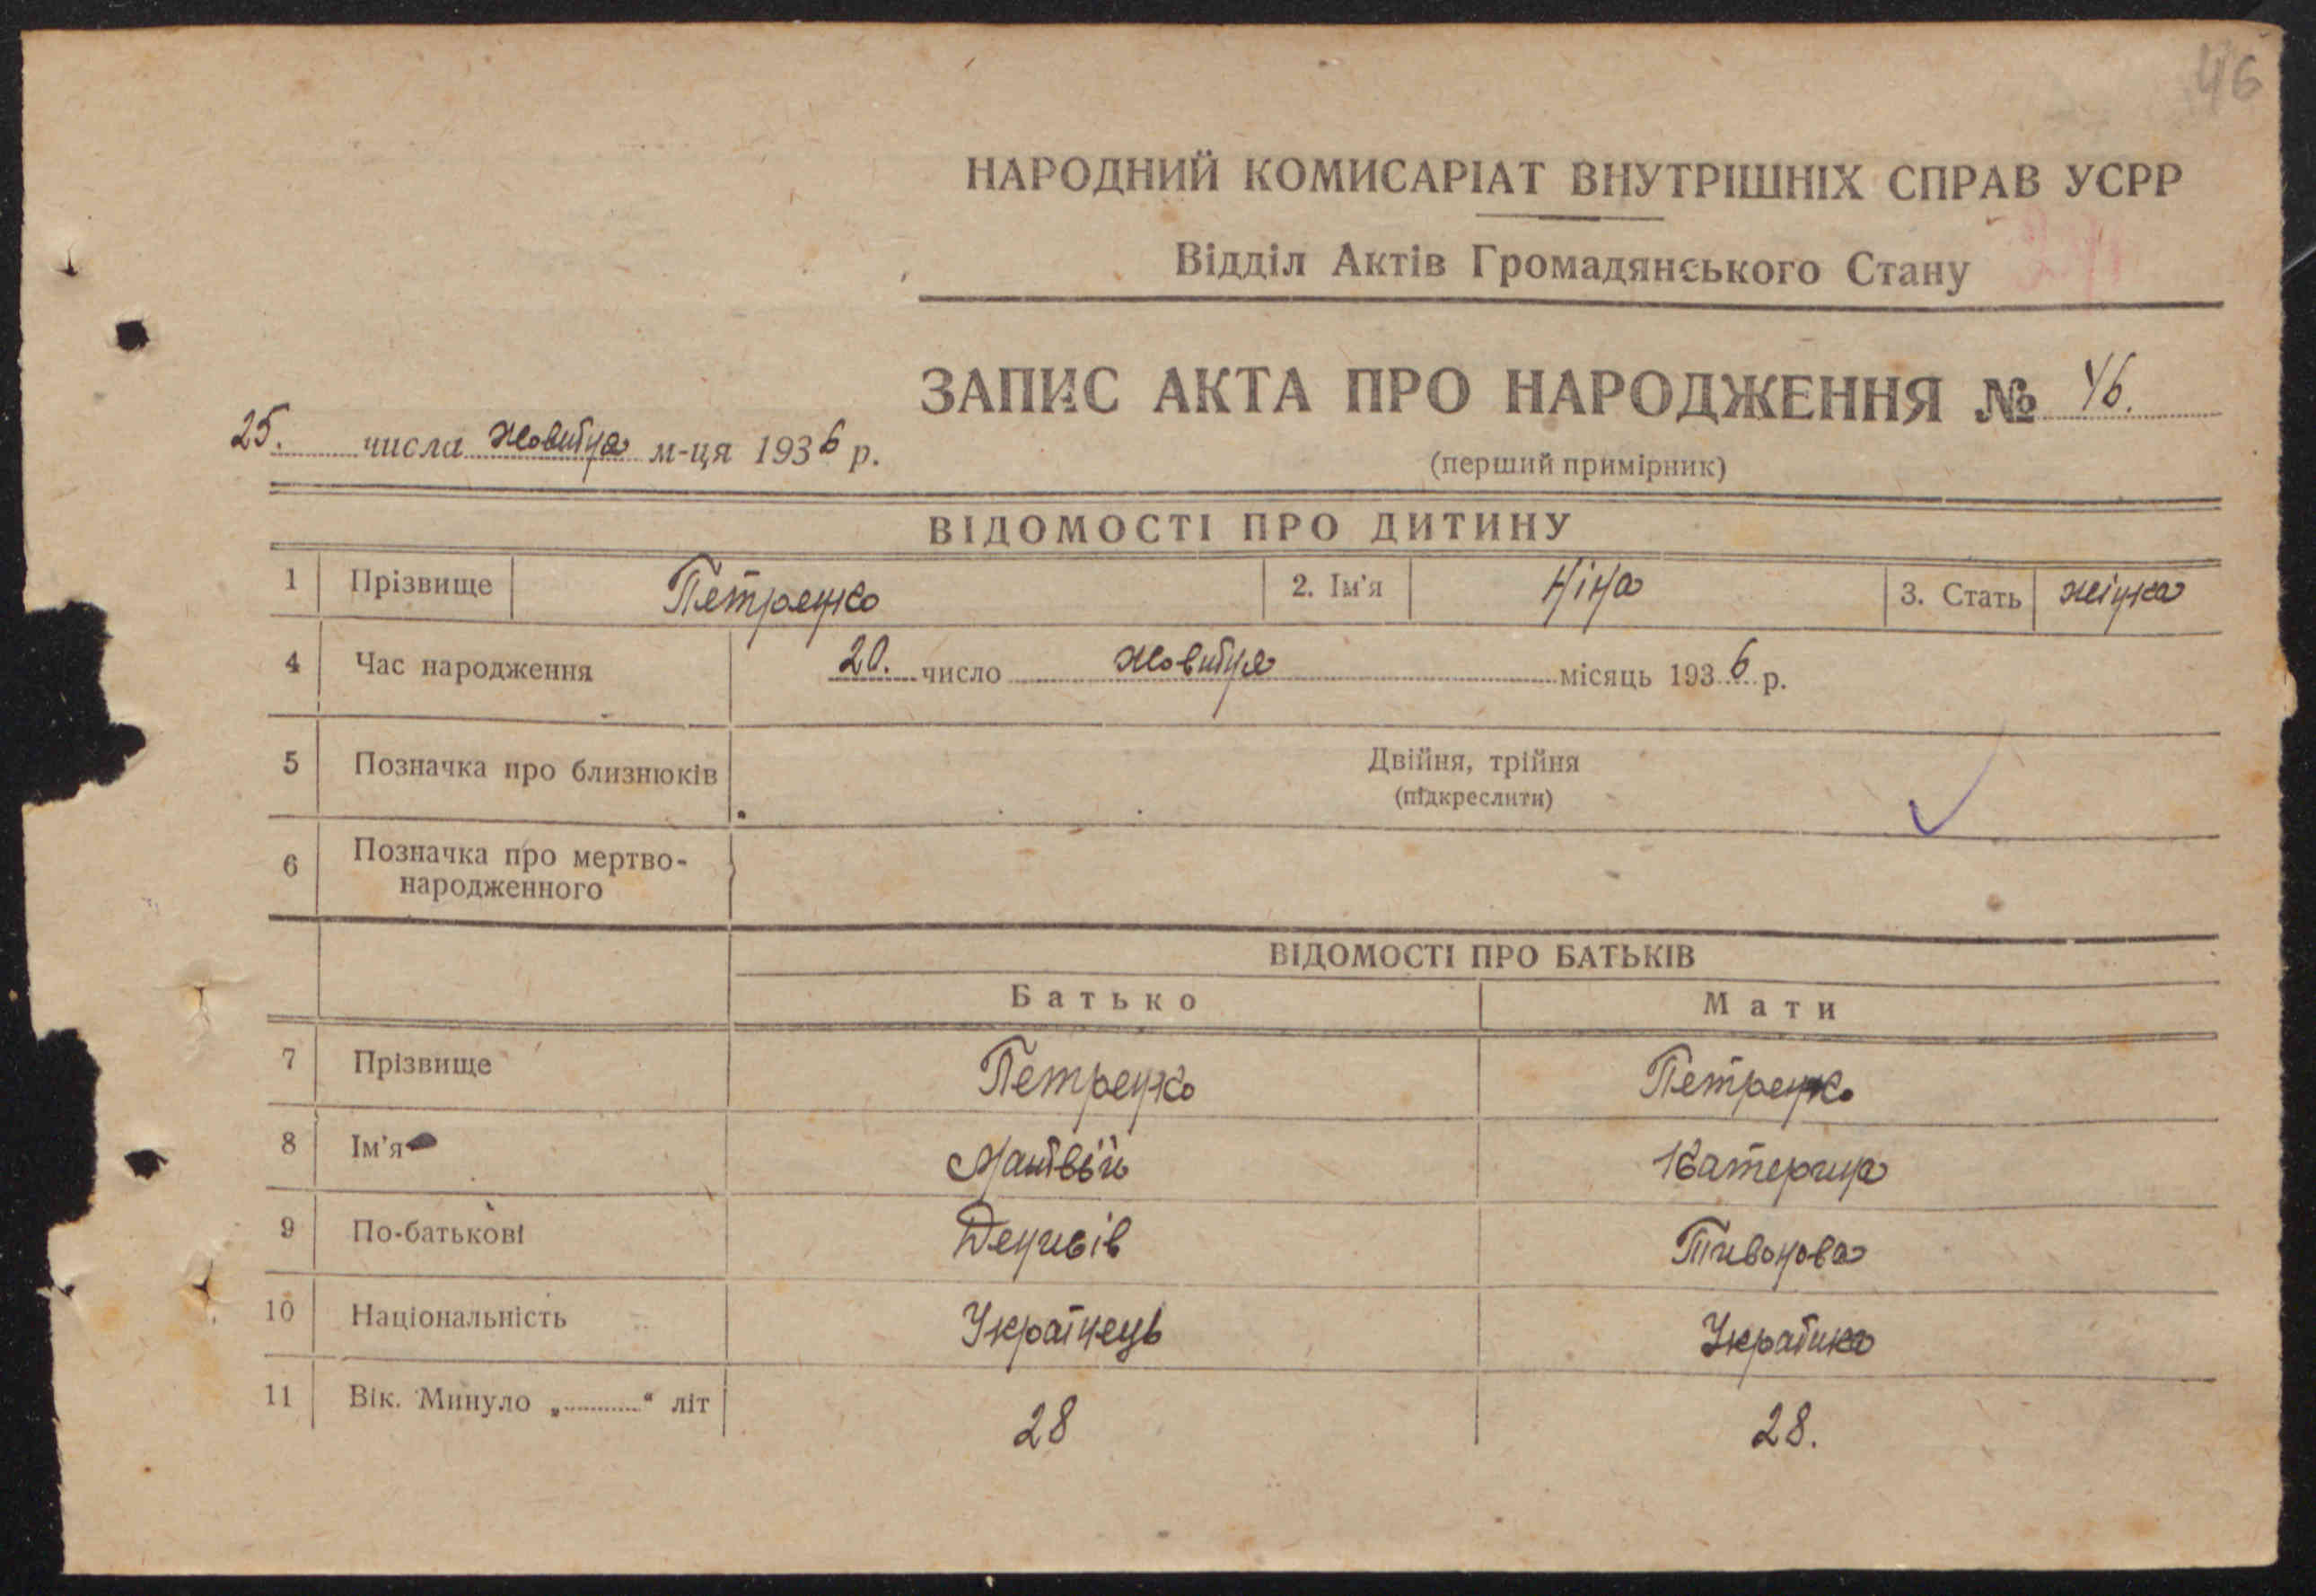 46
НАРОДНИЙ КОМИСАРІАТ ВНУТРІШНІХ СПРАВ УСРР
Відділ Актів Громадянського Стану
ЗАПИС АКТА ПРО НАРОДЖЕННЯ № 46.
25. числа Жовтня м-ця 1936 р.
(перший примірник)
ВІДОМОСТІ ПРО ДИТИНУ
1 Прізвище Петренко 2. Ім'я Ніна 3. Стать жінка
4 Час народження 20. число Жовтня місяць 1936 р.
5 Позначка про близнюків Двійня, трійня
(підкреслити)
6 Позначка про мертво-
народженного
ВІДОМОСТІ ПРО БАТЬКІВ
Батько Мати
7 Прізвище Петренко Петренко
8 Ім'я Матвій Катерина
9 По-батькові Денисів Тивонова
10 Національність Українець Українка
11 Вік. Минуло „ “ літ 28 28.